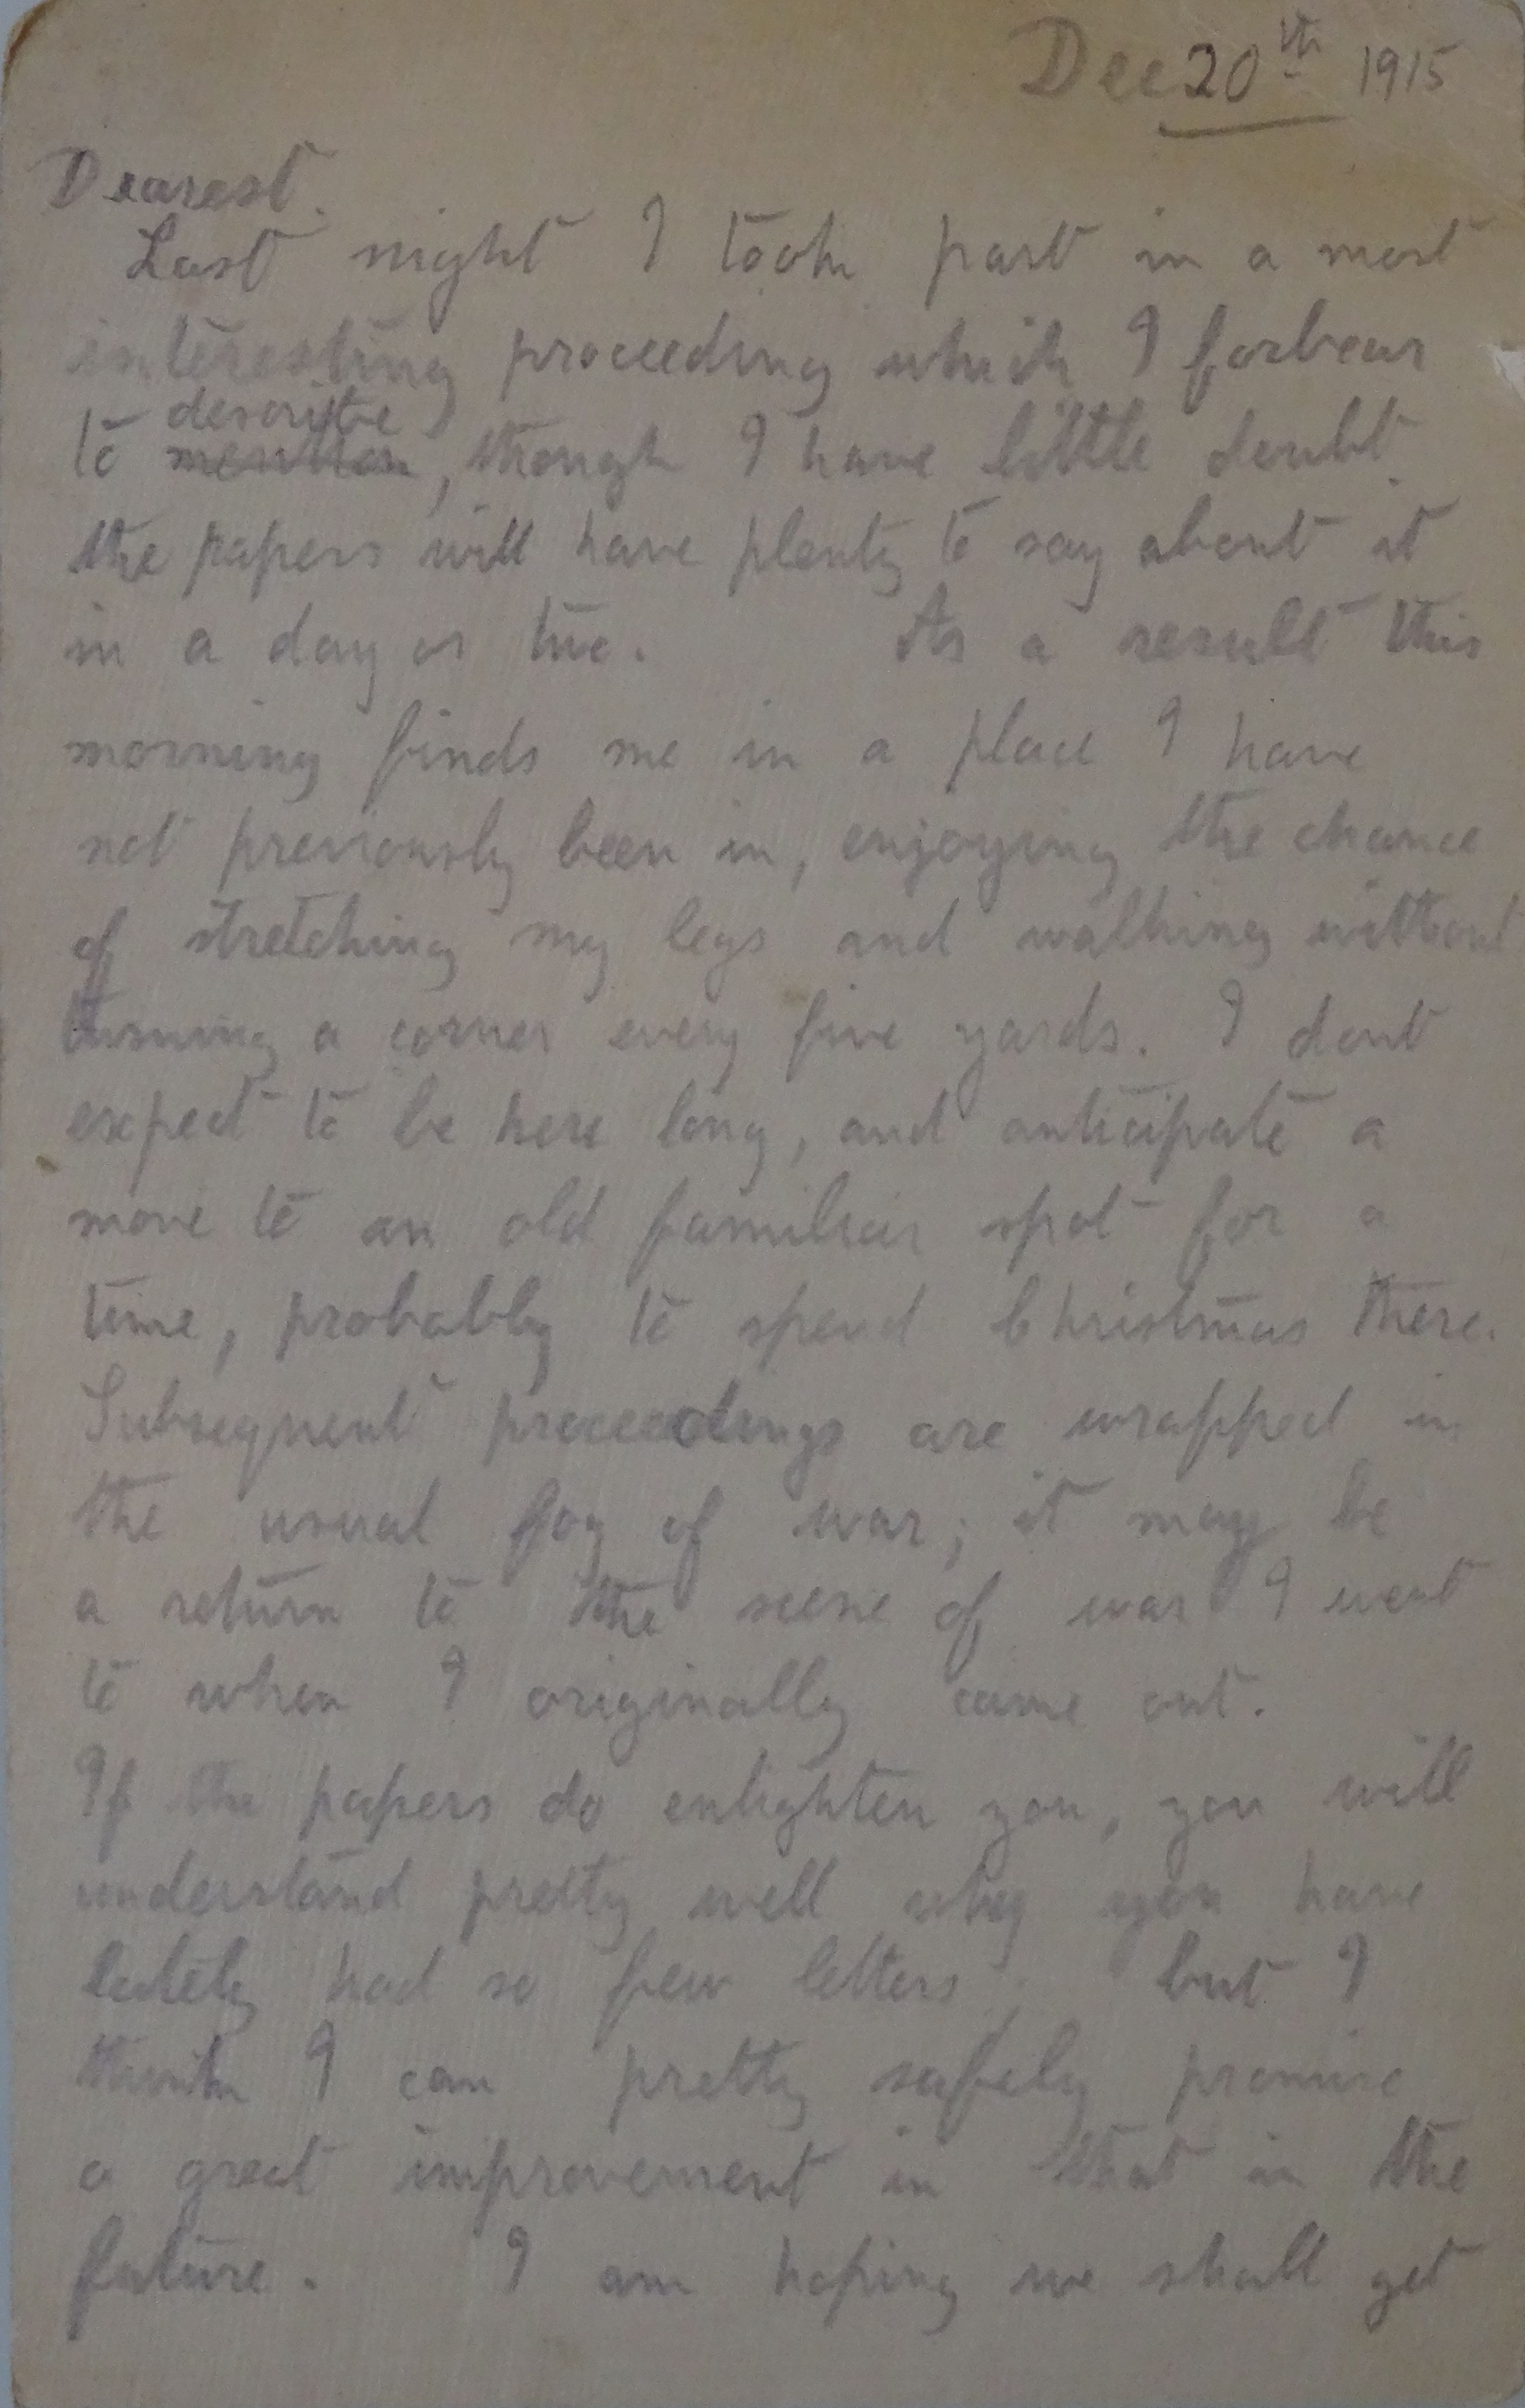 Dec 20th 1915
Dearest.
Last night I took part in a most
interesting proceeding which I forbear
describe
to mention, though I have little doubt
the papers will have plenty to say about it
in a day or two. As a result this
morning finds me in a place I have
not previously been in, enjoying the chance
of stretching my legs and walking without
turning a corner every five yards. I dont
expect to be here long, and anticipate a
move to an old familiar spot for a
time, probably to spend Christmas there.
Subsequent proceedings are wrapped in
the usual fog of war; it may be
a return to the scene of war I went
to when I originally came out.
If the papers do enlighten you, you will
understand pretty well why you have
lately had so few letters; but I
think I can pretty safely promise
a great improvement in that in the
future. I am hoping we shall get